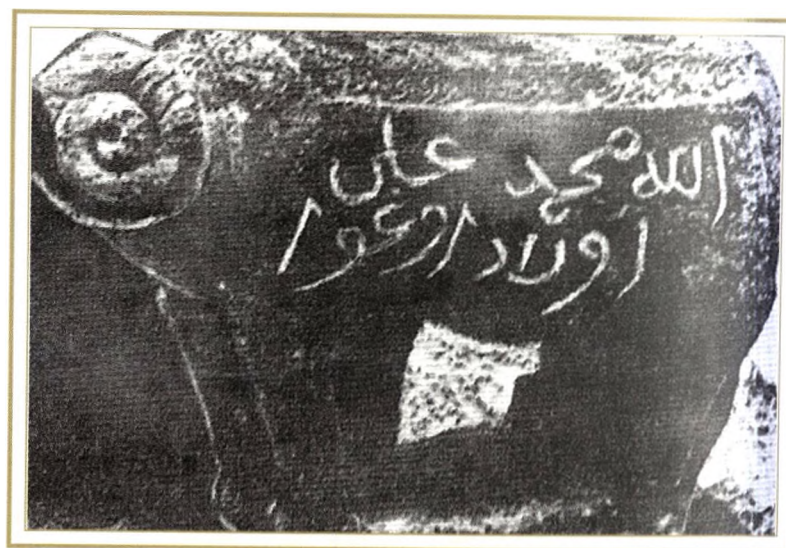 الله محمد علی
اولاد